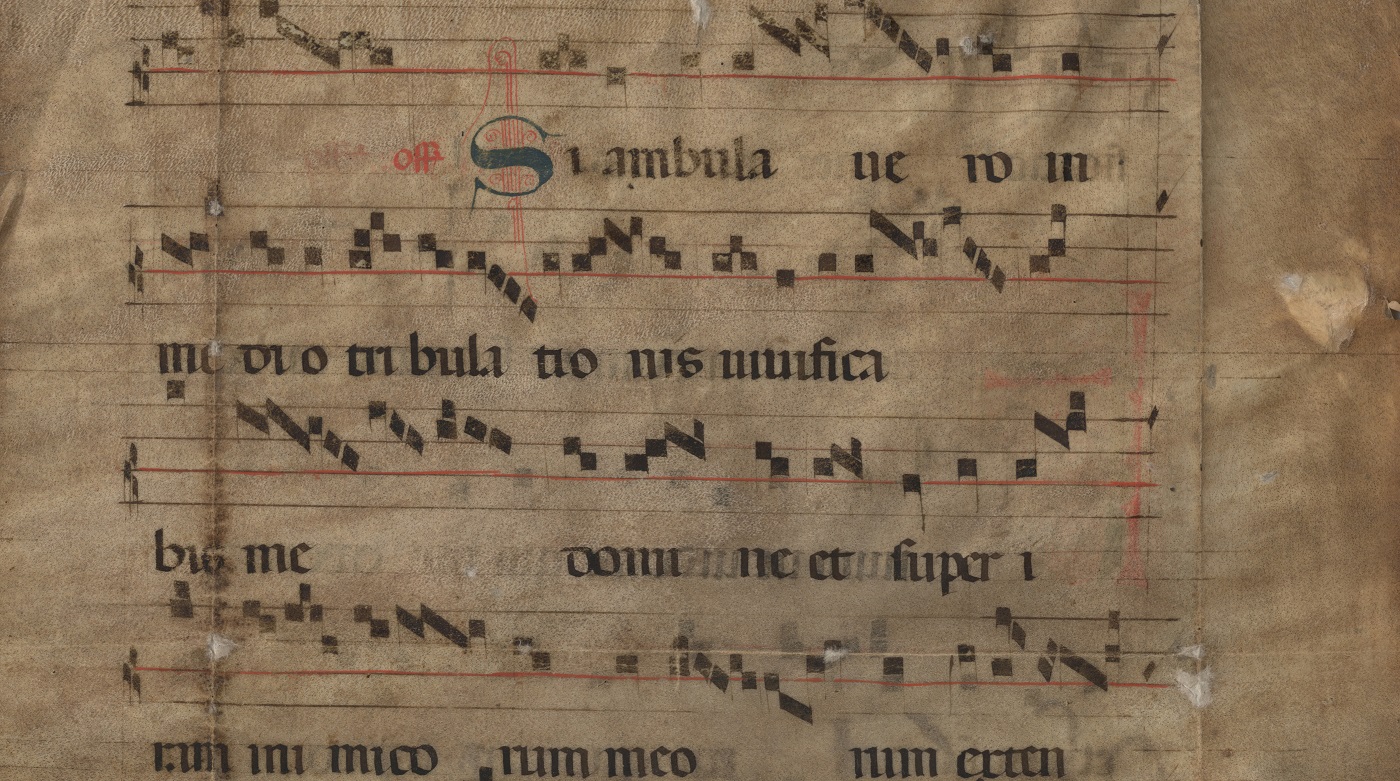 offr Si ambula ve ro in
me di o tri bula tio nis uiuifica
bis me domi ne et super i
ram ini mico rum meo rum exten